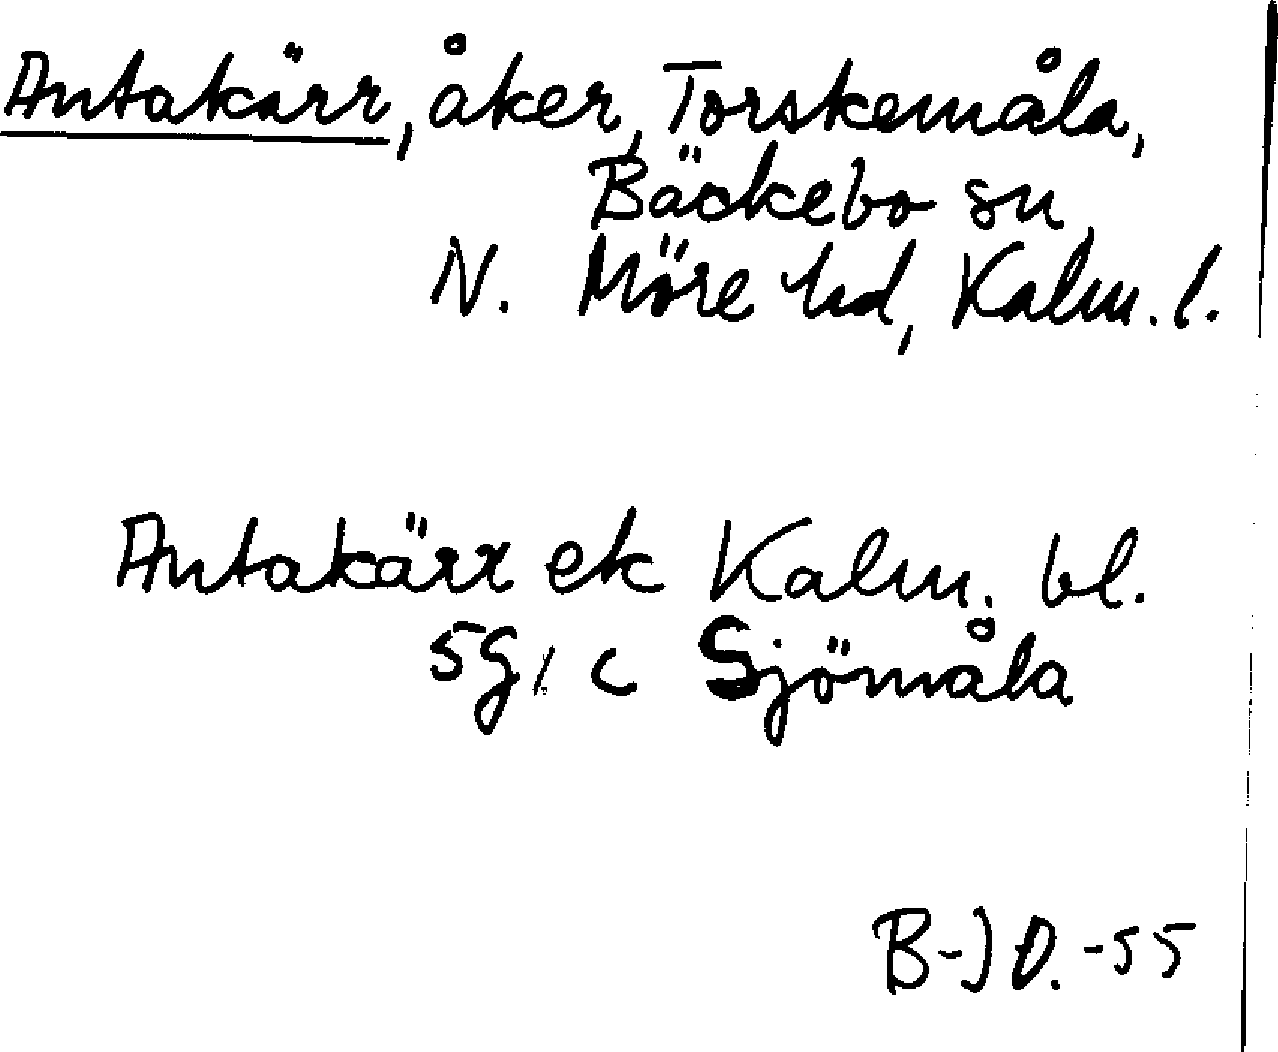 Antakärr, åker, Torskemåla,
Bäckebo sn
N. Möre hd, Kalm. l.
Antakärr ek Kalm. bl.
5g, c Sjömåla
B-J O. -55